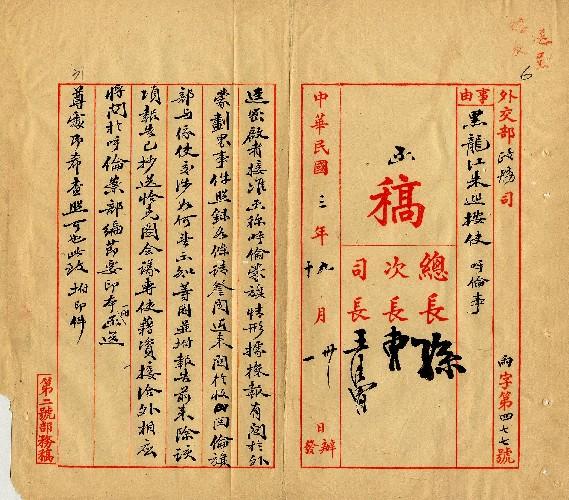 外交部政務司
事由
黑龍江朱巡按使 呼倫事
字第四七七號
函
稿
總長 孫
次長 曹
司長 王
中華民國三年九十月卅一日
辦發
逕密啟者接准函稱呼倫蒙旗情形據探報有關於外
蒙劃界事件照錄各件請詧閱近來關於收回呼倫旗
部與俄使交涉如何並示知等因並附報告前來除該
項報告已抄送恰克圖會議專使藉資接洽外相應
將關於呼倫案部編節要印本函送
尊處即希查照可也此致 附印件
第二號部務稿